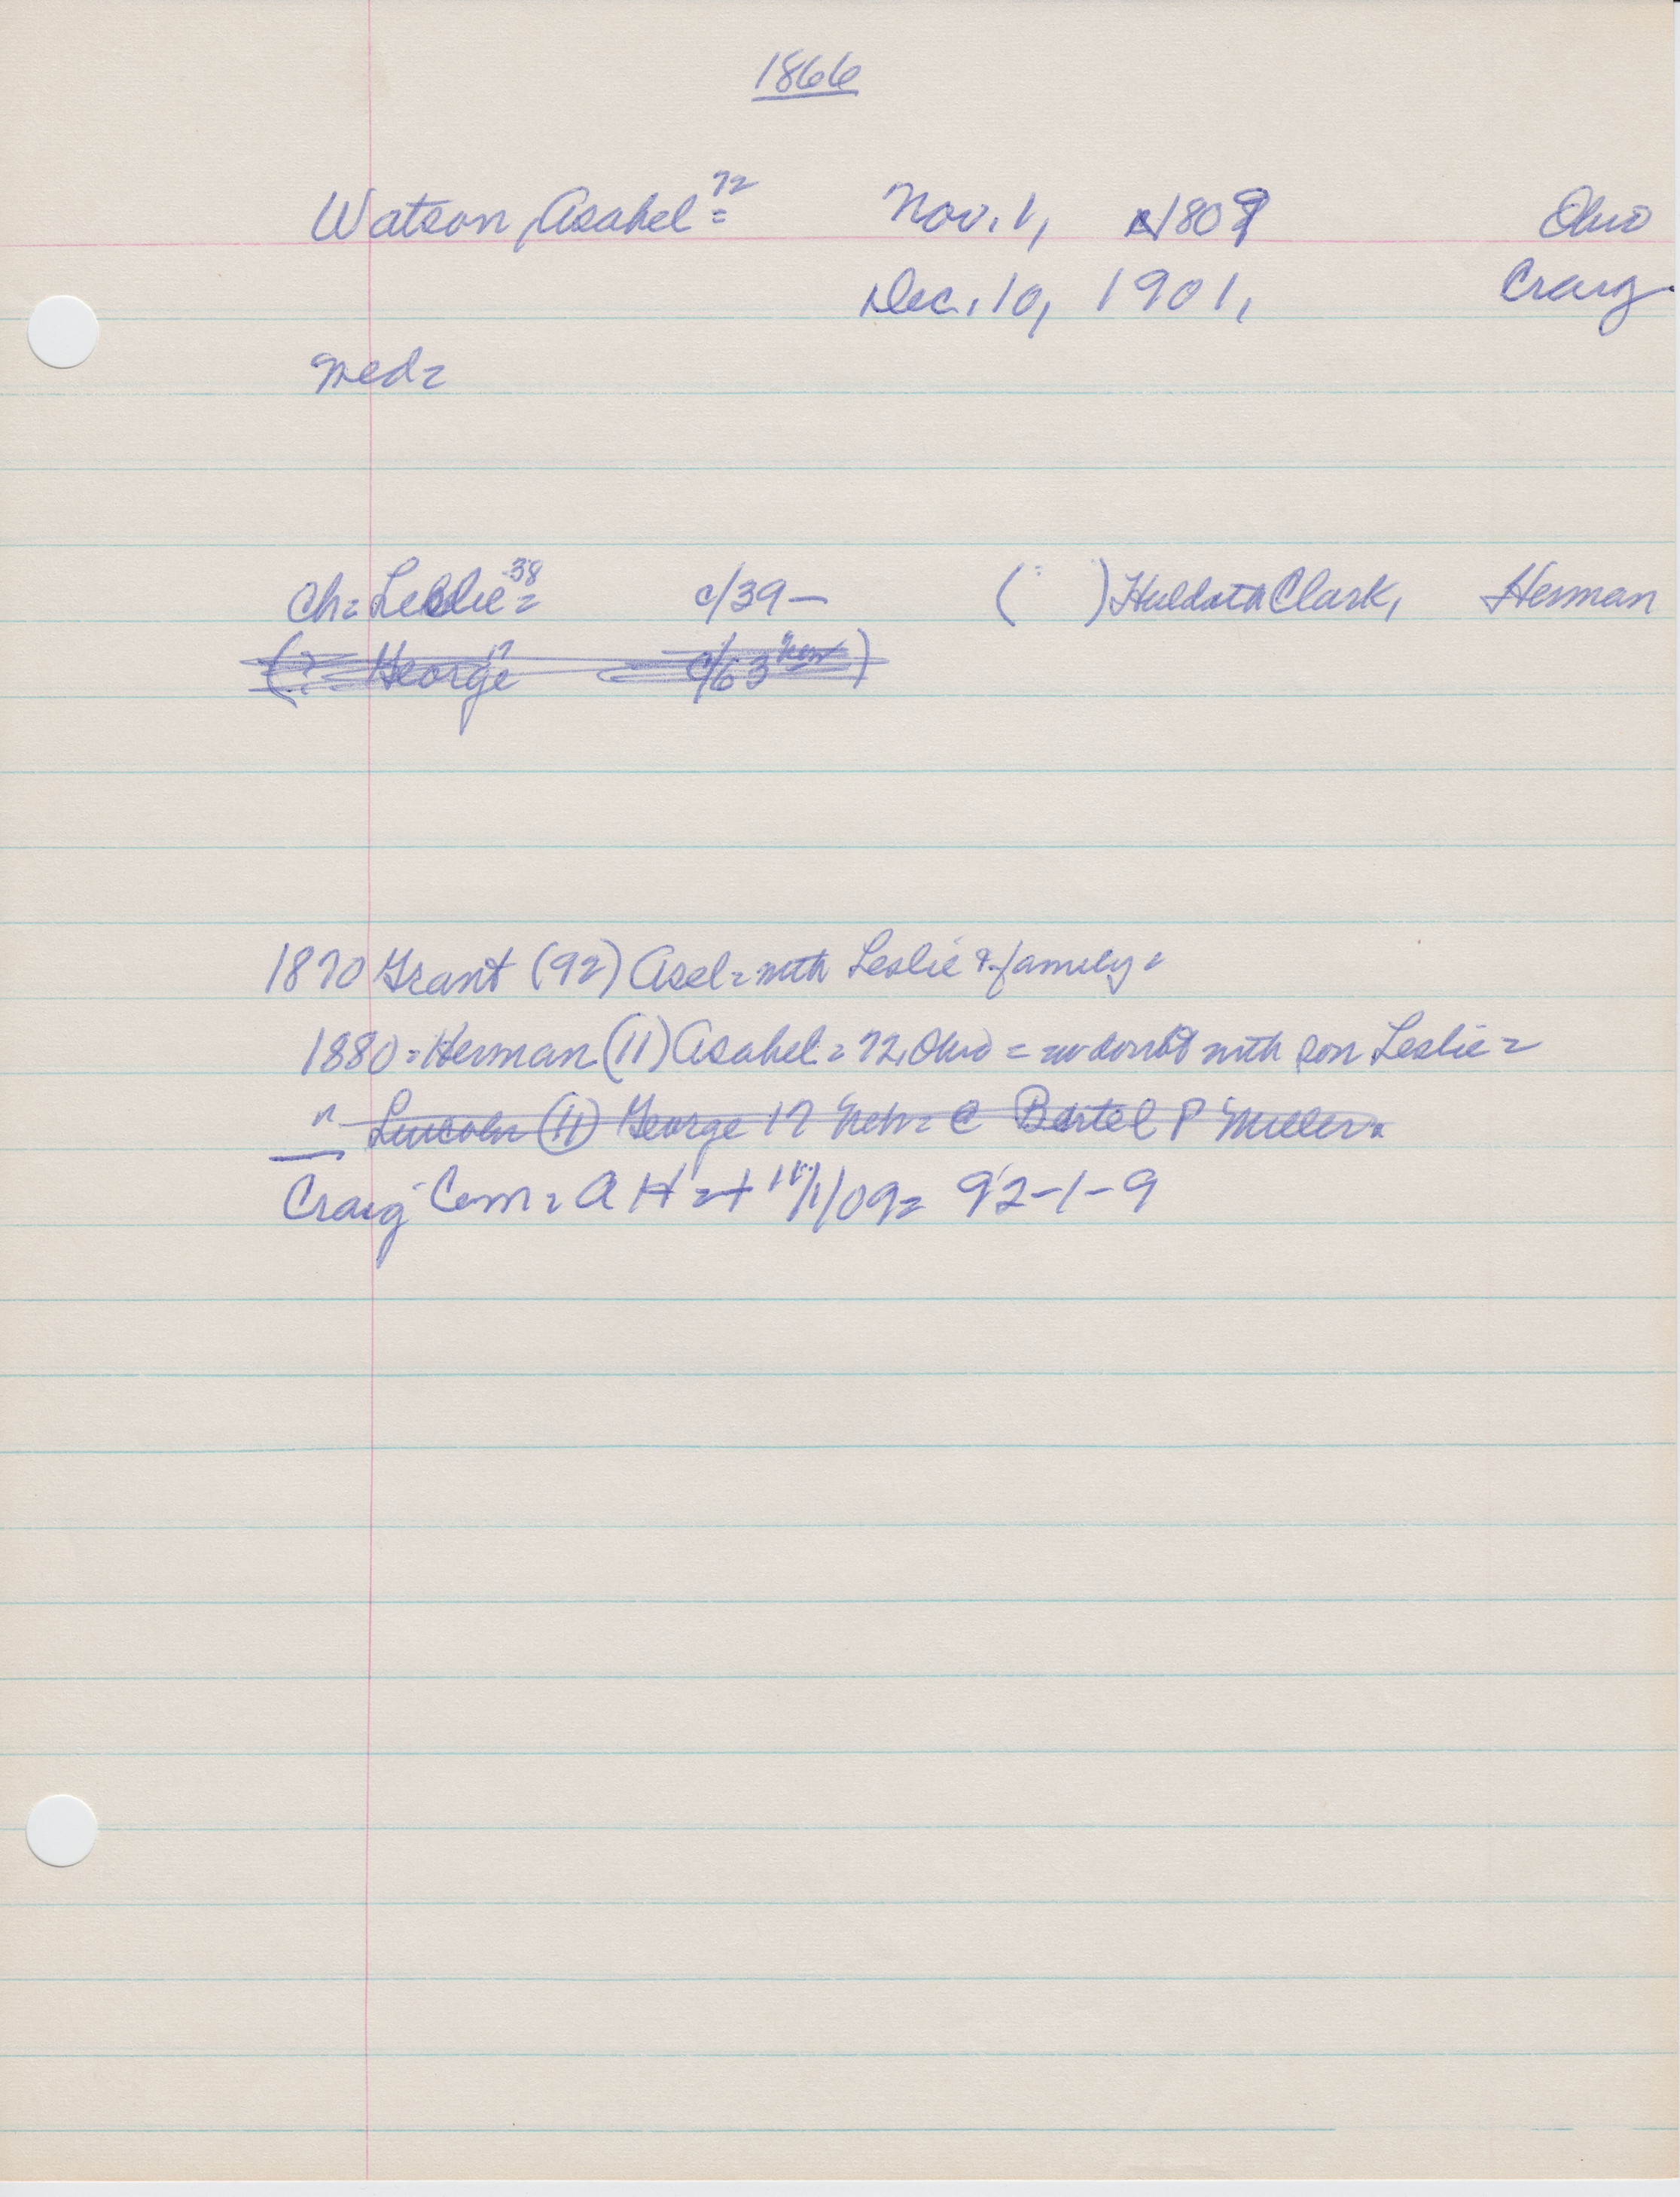 1866
Watson, Asahel 72 = Nov. 1, 1809 Ohio
Dec. 10, 1901, Craig
med =
Ch = Leslie 38 = c/39 – ( ) Huldath Clark, Herman
(? = George 17 c/63 )
1870 Grant (92) Asel = with Leslie & family =
1880 = Herman (11) Asahel = 72, Ohio = no doubt with son Leslie =
" Lincoln (11) George 17 Neb = C Bertel P Miller =
Craig Cem = A H = + 11/1/09 = 92-1-9